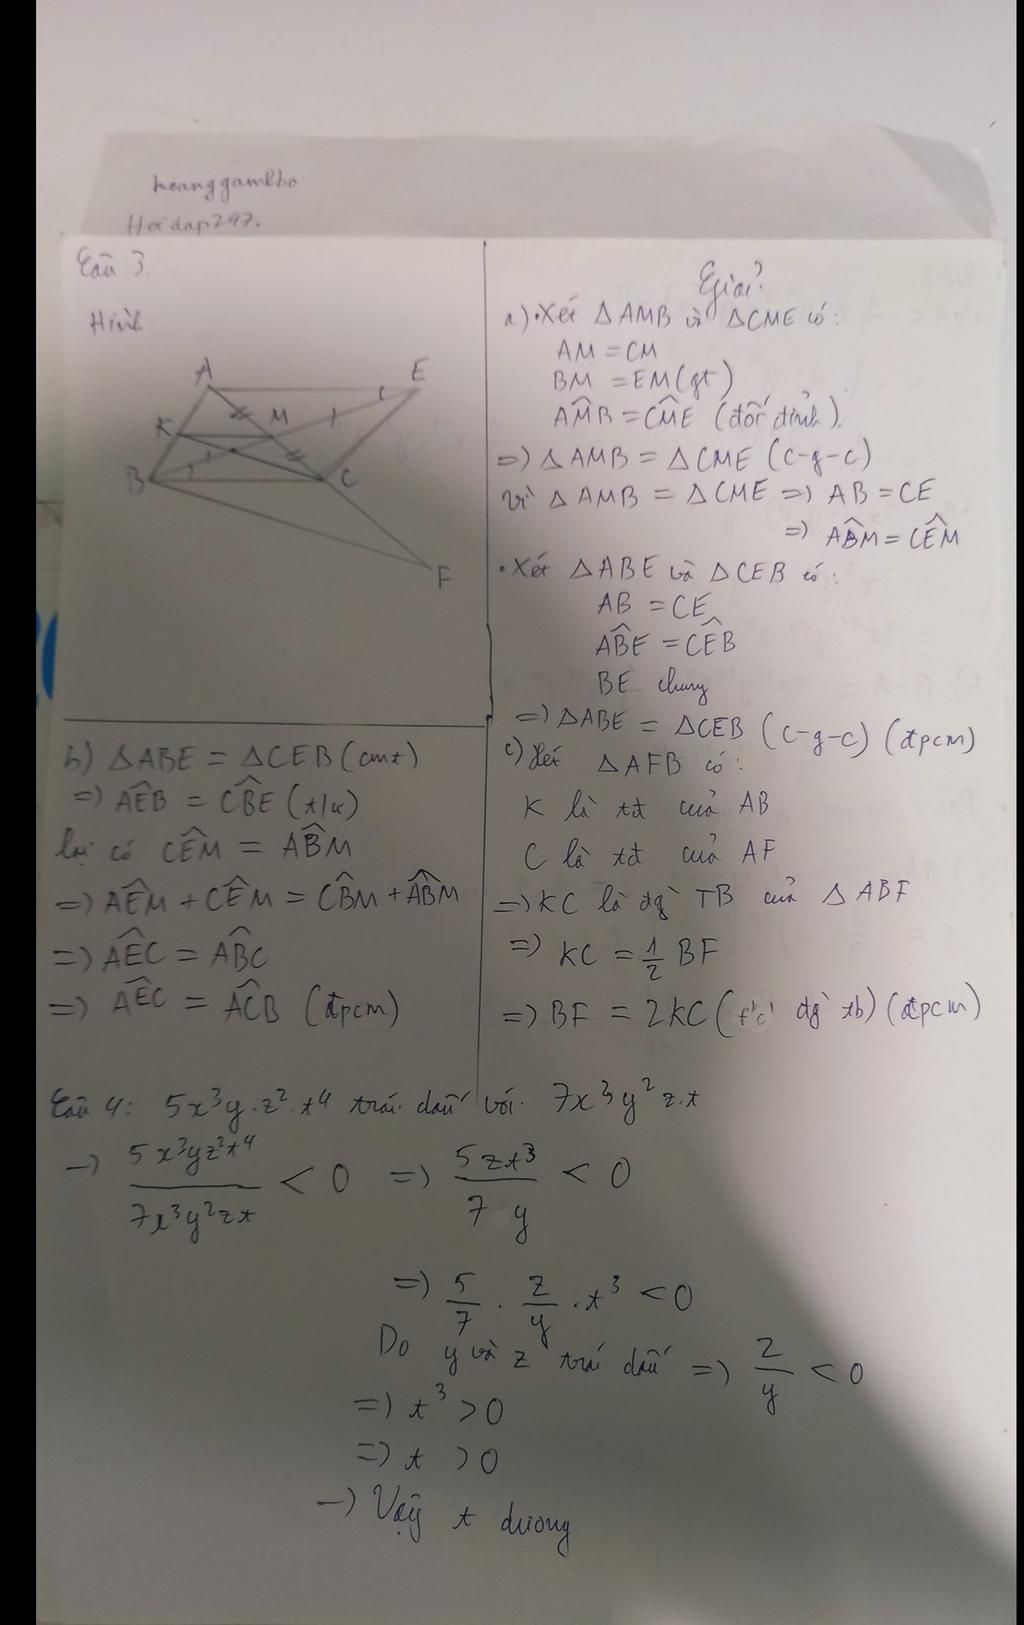 hoanggamlho
Hoidap247.
Câu 3.
Hình
A
E
K
M
B
C
F
Giải:
a) • Xét △AMB và △CME có:
AM = CM
BM = EM (gt)
AM̂B = CM̂E (đối đỉnh)
=> △AMB = △CME (c-g-c)
Vì △AMB = △CME => AB = CE
=> AB̂M = CÊM
• Xét △ABE và △CEB có:
AB = CE
AB̂E = CÊB
BE chung
=> △ABE = △CEB (c-g-c) (đpcm)
b) △ABE = △CEB (cmt)
=> AÊB = CB̂E (t/ư)
lại có CÊM = AB̂M
=> AÊM + CÊM = CB̂M + AB̂M
=> AÊC = AB̂C
=> AÊC = AĈB (đpcm)
c) Xét △AFB có:
K là tđ của AB
C là tđ của AF
=> KC là đg̀ TB của △ABF
=> KC = 1/2 BF
=> BF = 2KC (t/c đg̀ tb) (đpcm)
Câu 4: 5x³y.z².t⁴ trái dấu với 7x³y²z.t
→ 5x³yz²t⁴ / 7x³y²zt < 0 => 5zt³ / 7y < 0
=> 5/7 . z/y . t³ < 0
Do y và z trái dấu => z/y < 0
=> t³ > 0
=> t > 0
→ Vậy t dương